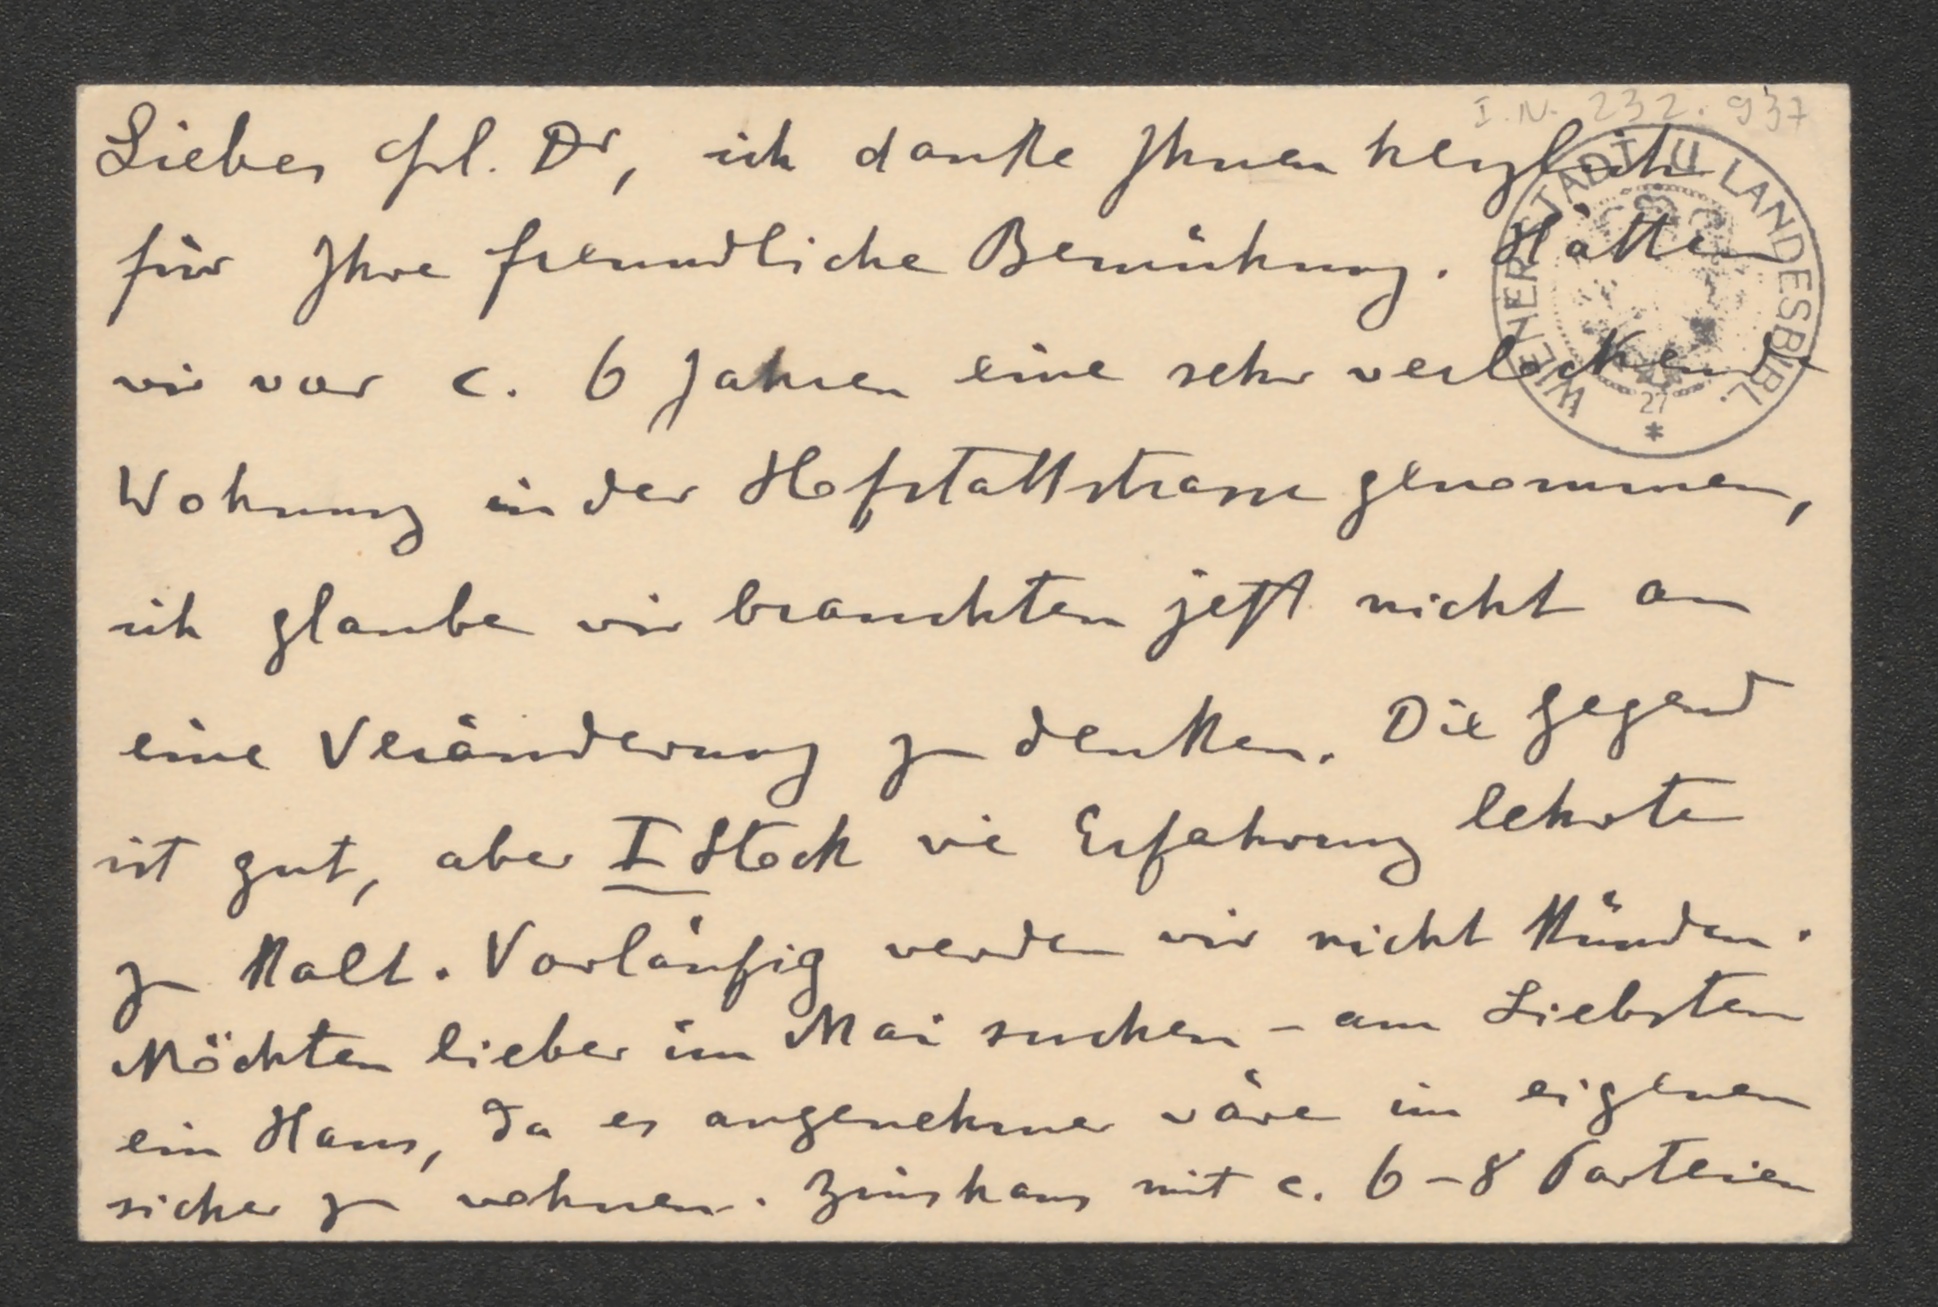 I. N. 232.937
Liebes Frl. Dr, ich danke Ihnen herzlich
für Ihre freundliche Bemühung. Hätten
wir vor c. 6 Jahren eine sehr verlockende
Wohnung in der Hofstattstrasse genommen,
ich glaube wir brauchten jetzt nicht an
eine Veränderung zu denken. Die Gegend
ist gut, aber I Stock wie Erfahrung lehrte
zu kalt. Vorläufig werden wir nicht künden.
Möchten lieber im Mai suchen - am Liebsten
ein Haus, da es angenehmer wäre im eigenen
sicher zu wohnen. Zinshaus mit c. 6-8 Parteien
WIENER STADT U LANDESBIBL.
27
*